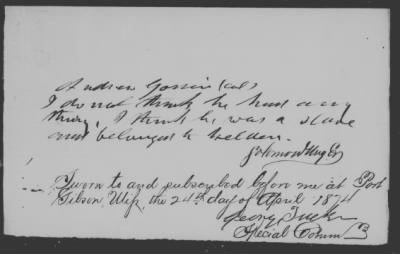 Andrew (Col)
I do not think he had any
thing, I think he was a slave
and belonged to
Solomon Hughes
Sworn to and subscribed before me at Port
Gibson, Miss, the 24th day of April 1874
George Tucker
Special Comm